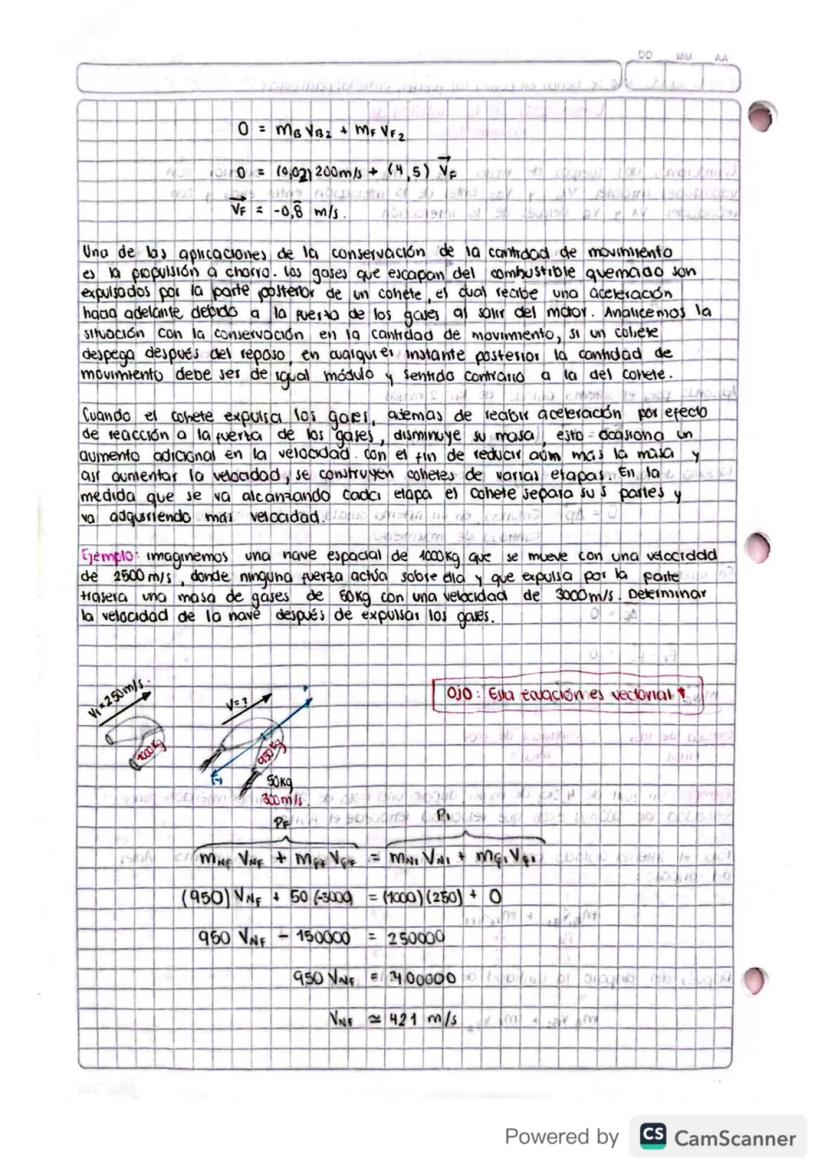 DD MM AA
0 = mB VB2 + mF VF2
0 = (0,02) 200m/s + (4,5) VF
VF = -0,8 m/s.
Una de las aplicaciones de la conservación de la cantidad de movimiento
es la propulsión a chorro. los gases que escapan del combustible quemado son
expulsados por la parte posterior de un cohete, el cual recibe una aceleración
hacia adelante debido a la fuerza de los gases al salir del motor. Analicemos la
situación con la conservación en la cantidad de movimiento, si un cohete
despega después del reposo, en cualquier instante posterior la cantidad de
movimiento debe ser de igual módulo y sentido contrario a la del cohete.
Cuando el cohete expulsa los gases, además de recibir aceleración por efecto
de reacción a la fuerza de los gases, disminuye su masa, esto ocasiona un
aumento adicional en la velocidad. con el fin de reducir aúm más la masa y
así aumentar la velocidad, se construyen cohetes de varias etapas. En la
medida que se va alcanzando cada etapa el cohete separa sus partes y
va adquiriendo más velocidad.
Ejemplo: imaginemos una nave espacial de 1000kg que se mueve con una velocidad
de 2500 m/s, donde ninguna fuerza actúa sobre ella y que expulsa por la parte
trasera una masa de gases de 50Kg con una velocidad de 3000m/s. Determinar
la velocidad de la nave después de expulsar los gases.
Ojo: Esta ecuación es vectorial!
V1=250m/s.
V=?
1000kg
950kg
50Kg
300m/s
PF
Pi
mNF VNF + mGF VGF = mNi VNi + mGi VGi
(950) VNF + 50 (-3000) = (1000)(250) + 0
950 VNF - 150000 = 250000
950 VNF = 400000
VNF ≃ 421 m/s
Powered by CS CamScanner